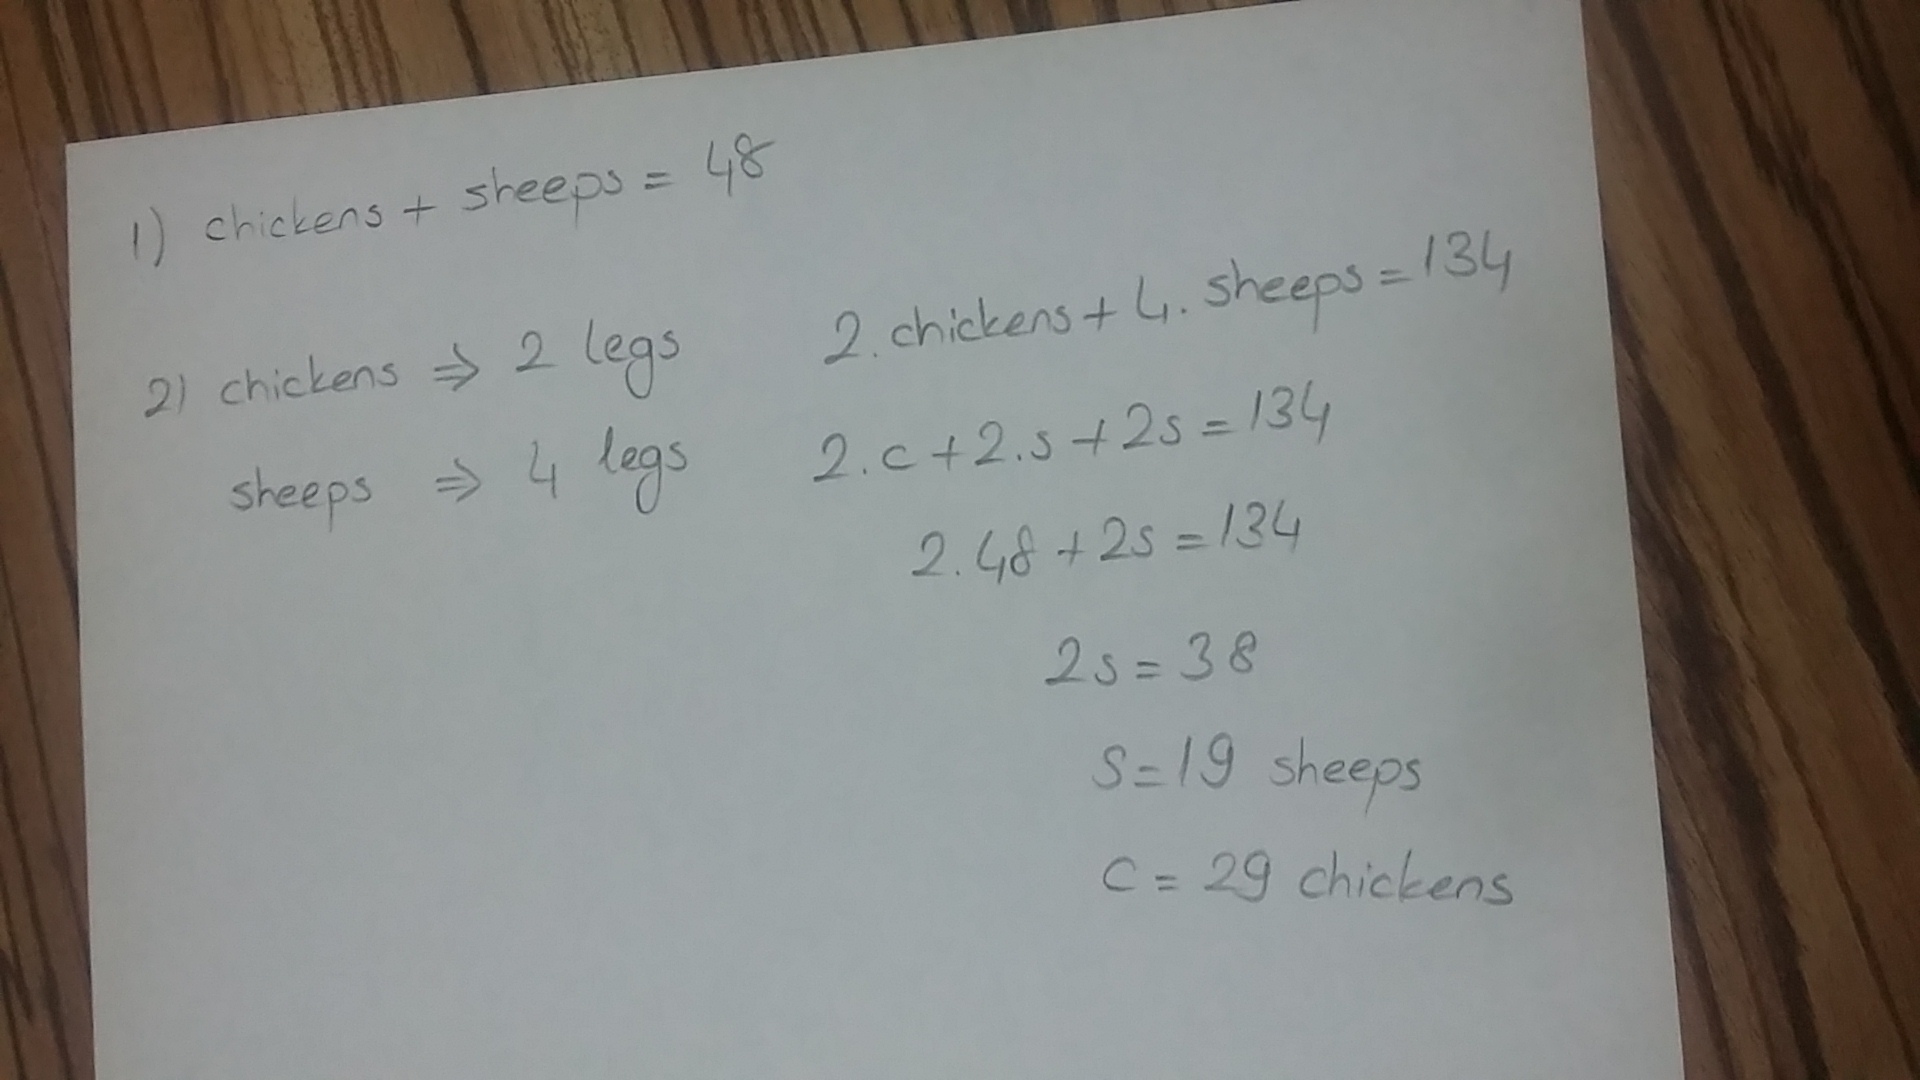 1) chickens + sheeps = 48
2) chickens ⇒ 2 legs
sheeps ⇒ 4 legs
2. chickens + 4. sheeps = 134
2.c + 2.s + 2s = 134
2.48 + 2s = 134
2s = 38
s = 19 sheeps
c = 29 chickens